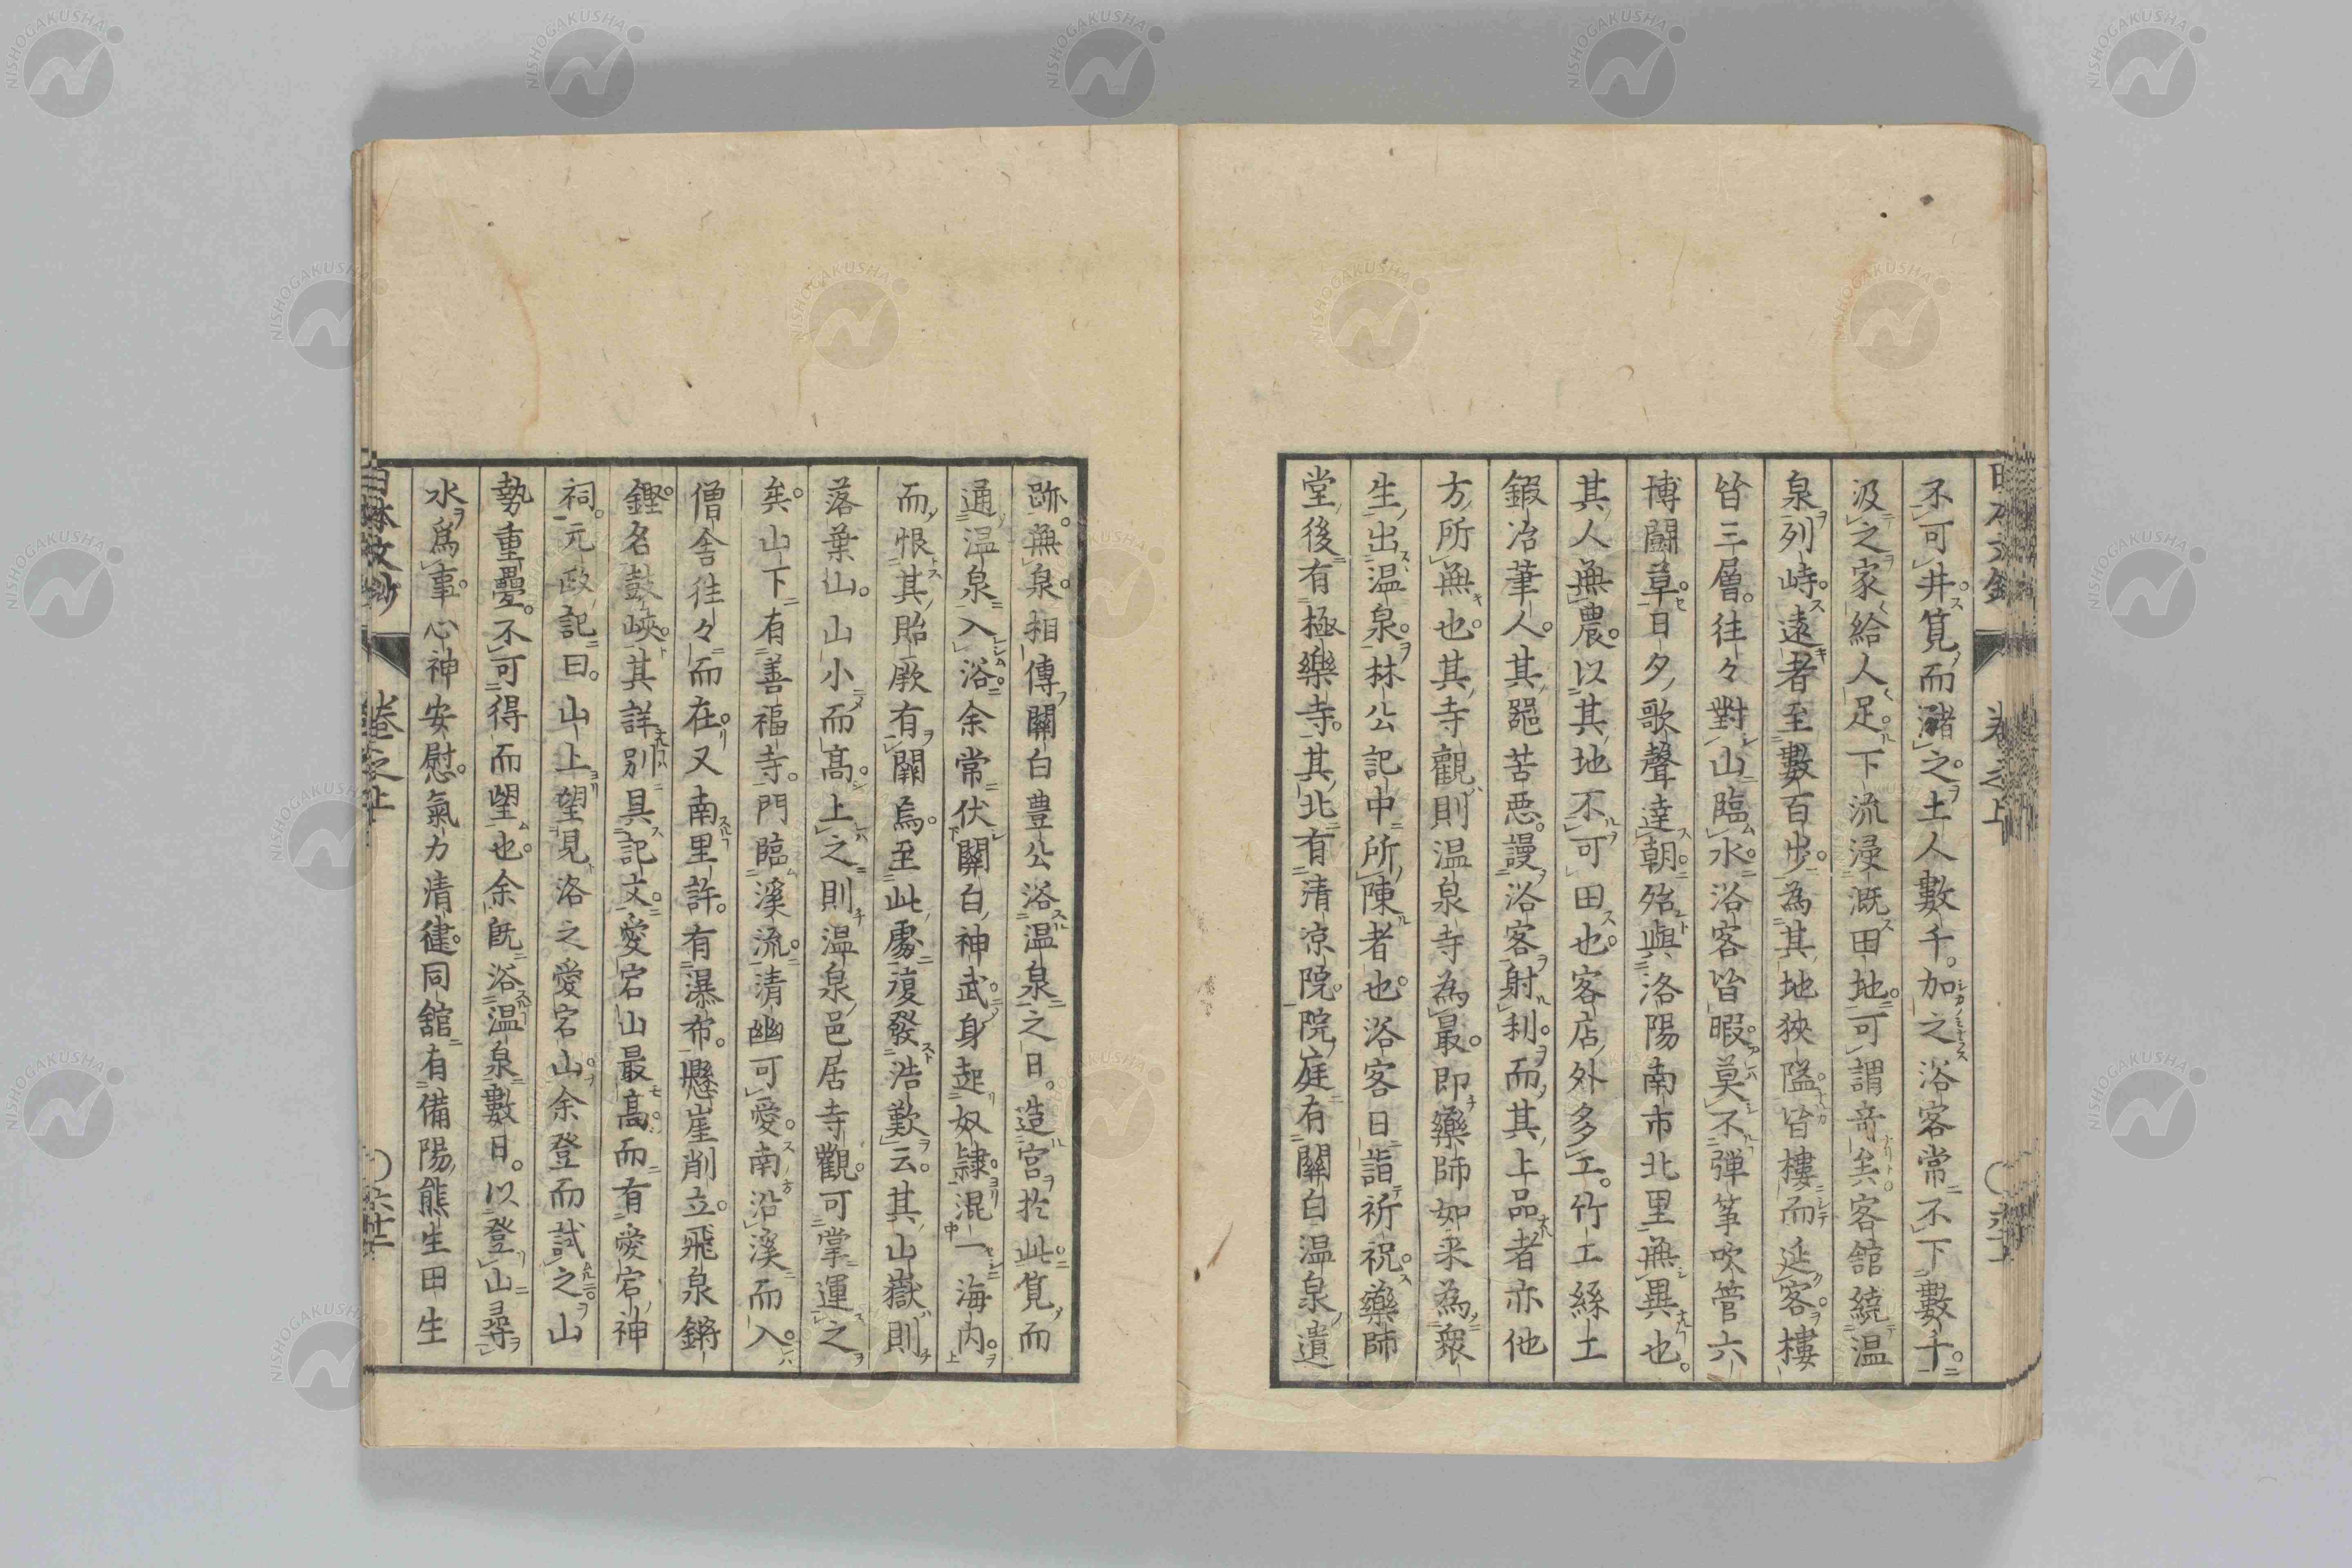 不可井筧而瀦之土人數千。加之浴客常不下數千。
汲之家給人足。下流浸漑田地。可謂竒矣客舘繞温
泉列峙。遠者至數百步。為其地狹隘皆樓而延客。樓
皆三層。往々對山臨水。浴客皆暇。莫不彈筝吹管六
博鬪草。日夕歌聲達朝。殆與洛陽南市北里無異也。
其人無農。以其地不可田也。客店外多工。竹工絲工
鍛冶筆人。其噐苦悪。謾浴客射利。而其上品者亦他
方所無也。其寺觀則温泉寺為最。即藥師如来為衆
生出温泉。林公記中所陳者也。浴客日詣祈祝。藥師
堂後有極樂寺。其北有清凉院。院庭有關白温泉遺
跡。無泉。相傳關白豊公浴温泉之日。造宮於此。筧而
通温泉入浴。余常伏關白神武。身起奴隷。混一海内。
而恨其貽厥有闕焉。至此處復發浩歎云。其山嶽則
落葉山。山小而髙。上之則温泉邑居寺觀。可掌運之
矣。山下有善福寺。門臨溪流。清幽可愛。南沿溪而入。
僧舎往々而在。又南里許。有瀑布。懸崖削立。飛泉鏘
鏗。名鼓峽。其詳別具記文。愛宕山最髙。而有愛宕神
祠。元政記曰。山上望見洛之愛宕山。余登而試之山
勢重疊。不可得而望也。余既浴温泉數日。以登山尋
水爲事。心神安慰。氣力清健。同舘有備陽熊生田生
日本文鈔
卷之上